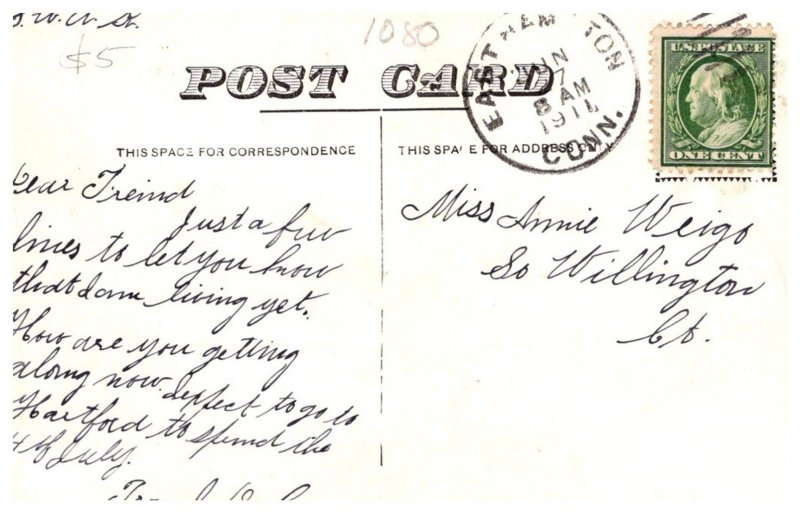 $5
1080
POST CARD
EAST HAMPTON
JUN
7
8 AM
1911
CONN.
U.S. POSTAGE
ONE CENT
THIS SPACE FOR CORRESPONDENCE
THIS SPACE FOR ADDRESS ONLY
Dear Freind
Just a few
lines to let you know
that I am living yet.
How are you getting
along now. I expect to go to
Hartford to spend the
4th July.
Miss Annie Weigo
So Willington
Ct.